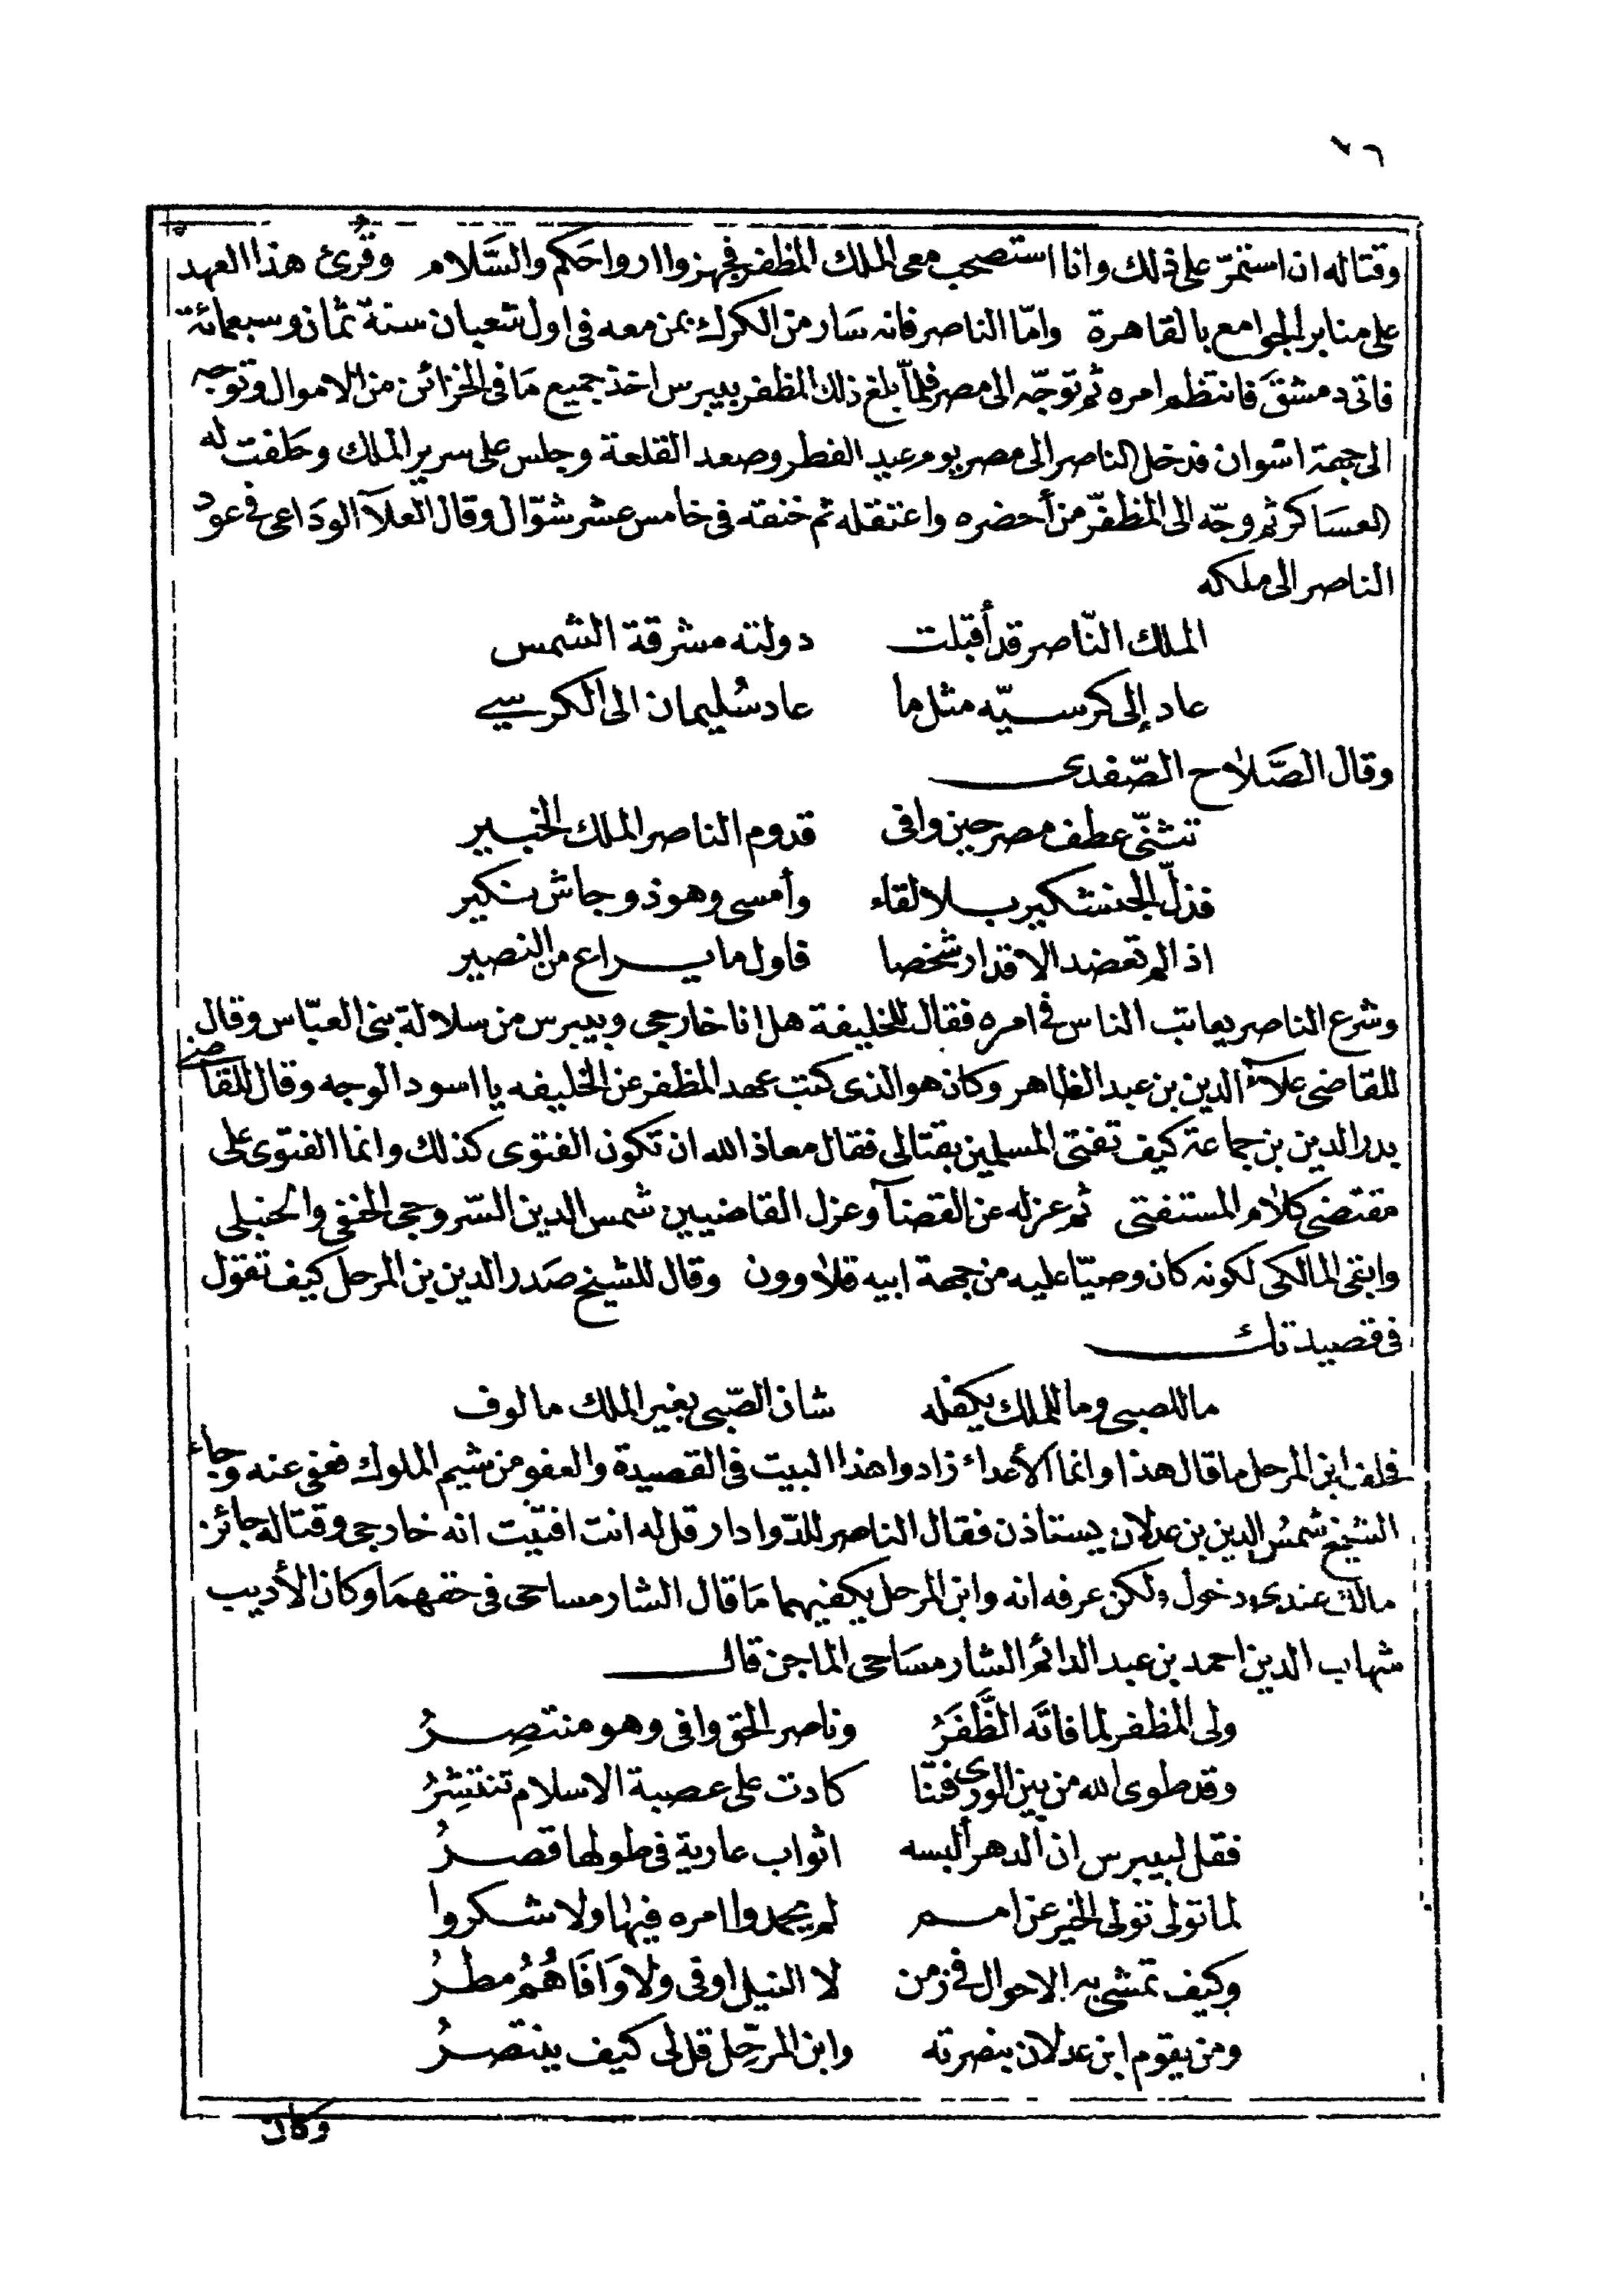 ٧٦
وقتاله ان استمرّ على ذلك وانا استصحب معى الملك المظفر فجهزوا ارواحكم والسَّلام وقُرِئ هذا العهد
على منابر الجوامع بالقاهرة وامّا الناصر فانه سَار من الكرك بمن معه فى اول شعبان سنة ثمان وسبعمائة
فاتى دمشقَ فانتظم امره ثم توجّه الى مصر فلمّا بلغ ذلك المظفر بيبرس اخذ جميع مَا فى الخزائن من الاموال وتوجه
الى جهة اسوان فدخل الناصر الى مصر يوم عيد الفطر وصعد القلعة وجلس على سرير الملك وحَلفت له
العسَاكر ثم وجّه الى المظفّر من أحضره واعتقله ثم خنقه فى خامس عشر شوّال وقال العلآ الودَاعى فى عود
الناصر الى ملكه
الملك النّاصر قد أقبلت دولته مشرقة الشمس
عاد إلى كرسيّه مثل ما عاد سُليمان الى الكرسى
وقال الصَّلاح الصّفدى
تثنّى عطف مصر حين وافى قدوم الناصر الملك الخبير
فذلّ الجنشكير بلا لقاء وأمسى وهو ذو جاش نكير
اذا لم تعضد الاقدار شخصا فاول ما يراع من النصير
وشرع الناصر يعاتب الناس فى امره فقال للخليفة هل انا خارجى وبيبرس من سلالة بنى العبّاس وقال
للقاضى علاء الدين بن عبد الظاهر وكان هو الذى كتب عهد المظفر عن الخليفه يا اسود الوجه وقال للقاضى
بدر الدين بن جماعة كيف تفتى المسلمين بقتالى فقال معاذ الله ان تكون الفتوى كذلك وانما الفتوى على
مقتضى كلام المستفتى ثم عزله عن القضآ وعزل القاضيين شمس الدين السّروجى الحنفى والحنبلى
وابقى المالكى لكونه كان وصيّا عليه من جهة ابيه قلاوون وقال للشيخ صَدر الدين بن المرحل كيف تقول
فى قصيدتك
ما للصبى وما للملك يكفله شان الصّبى بغير الملك مالوف
فحلف ابن المرحل ما قال هذا وانما الأعداء زادوا هذا البيت فى القصيدة والعفو من شيم الملوك فعفى عنه وجاء
الشيخ شمسُ الدين بن عدلان يستاذن فقال الناصر للدّوادار قل له انت افتيت انه خارجى وقتاله جائز
مالك عندى دخول ولكن عرفه انه وابن المرحل يكفيهما مَا قال الشارمساحى فى حقهمَا وكان الأديب
شهاب الدين احمد بن عبد الدائم الشارمسَاحى الماجن قال
ولى المظفر لما فاتَه الظَّفَرُ وناصر الحق وافى وهو منتصِرُ
وقد طوى الله من بين الورى فتنا كادت على عصبة الاسلام تنتشِرُ
فقل لبيبرس ان الدهر ألبسه اثواب عارية فى طولها قصرُ
لما تولى تولى الخير عن امم لم يحمدوا امره فيها ولا شكروا
وكيف تمشى به الاحوال فى زمن لا النيل اوفى ولا وَافَاهُمُ مطرُ
ومن يقوم ابن عدلان بنصرته وابن المرحّل قل لى كيف ينتصرُ
وكان